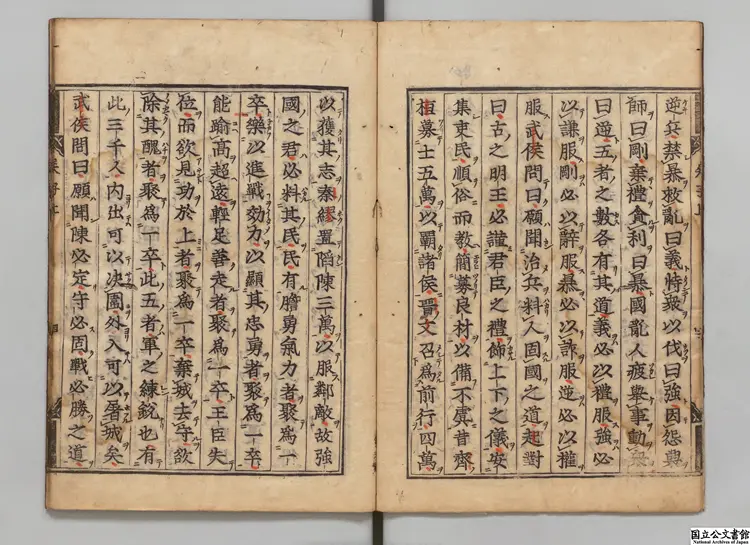 逆兵禁暴救亂曰義恃衆以伐曰強因怨興
師曰剛棄禮貪利曰暴國亂人疲擧事動衆
曰逆五者之數各有其道義必以禮服強必
以謙服剛必以辭服暴必以詐服逆必以權
服武侯問曰願聞治兵料人固國之道起對
曰古之明王必謹君臣之禮飾上下之儀安
集吏民順俗而教簡募良材以備不虞昔齊
桓募士五萬以霸諸侯晋文召爲前行四萬
以獲其志秦繆置陷陳三萬以服鄰敵故強
國之君必料其民民有膽勇氣力者聚爲一
卒樂以進戰効力以顯其忠勇者聚爲一卒
能踰高超遠輕足善走者聚爲一卒王臣失
位而欲見功於上者聚爲一卒棄城去守欲
除其醜者聚爲一卒此五者軍之鍊銳也有
此三千人内出可以决圍外入可以屠城矣
武侯問曰願聞陳必定守必固戰必勝之道
国立公文書館
National Archives of Japan